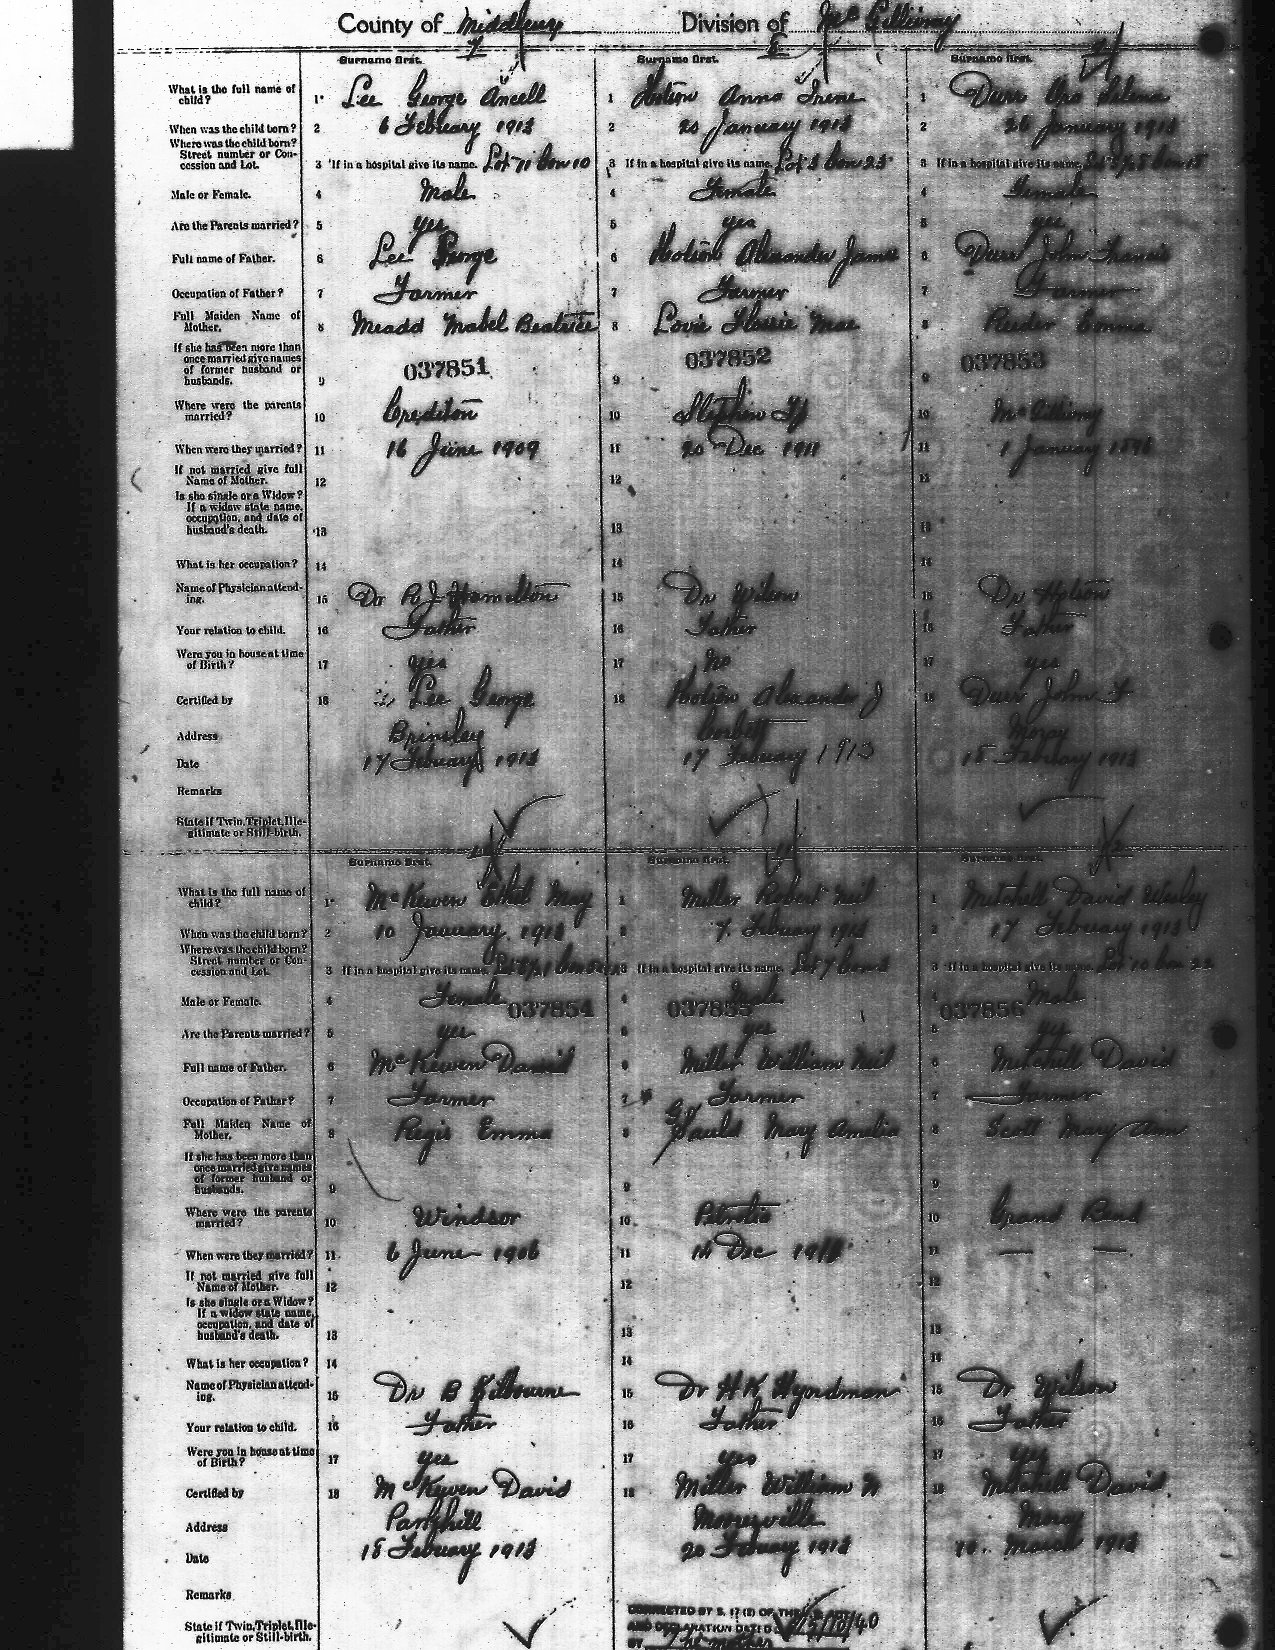 County of Middlesex Division of McGillivray
7 8 9
Surname first. Surname first. Surname first.
What is the full name of child? 1 Lee George Ancell 1 Hotson Anna Irene 1 Durr Selena
When was the child born? 2 6 February 1913 2 20 January 1913 2 26 January 1913
Where was the child born? Street number or Concession and Lot. 3 If in a hospital give its name. Lot 71 Con 10 3 If in a hospital give its name. Lot 5 Con 25 3 If in a hospital give its name.
Male or Female. 4 Male 4 Female 4 Female
Are the Parents married? 5 yes 5 yes 5 yes
Full name of Father. 6 Lee George 6 Hotson Alexander James 6 Durr John Francis
Occupation of Father? 7 Farmer 7 Farmer 7 Farmer
Full Maiden Name of Mother. 8 Meadd Mabel Beatrice 8 Lovie Flossie Mae 8 Reeder Emma
If she has been more than once married give names of former husband or husbands. 9 037851 9 037852 9 037853
Where were the parents married? 10 Crediton 10 Stephen Tp 10 McGillivray
When were they married? 11 16 June 1909 11 20 Dec 1911 11 1 January 1896
If not married give full Name of Mother. 12 12 12
Is she single or a Widow? If a widow state name, occupation, and date of husband's death. 13 13 13
What is her occupation? 14 14 14
Name of Physician attending. 15 Dr R J Hamelton 15 Dr Wilson 15 Dr
Your relation to child. 16 Father 16 Father 16 Father
Were you in house at time of Birth? 17 yes 17 no 17 yes
Certified by 18 Lee George 18 Hotson Alexander J 18 Durr John F
Address Brinsley Corbett Moray
Date 17 February 1913 17 February 1913 18 February 1913
Remarks
State if Twin, Triplet, Illegitimate or Still-birth.
10 11 12
Surname first. Surname first. Surname first.
What is the full name of child? 1 McKewen Ethel May 1 Miller Robert Neil 1 Mitchell David Wesley
When was the child born? 2 10 January 1913 2 7 February 1913 2 17 February 1913
Where was the child born? Street number or Concession and Lot. 3 If in a hospital give its name. 3 If in a hospital give its name. Lot 7 Con 3 3 If in a hospital give its name. Lot 10 Con 22
Male or Female. 4 Female 037854 4 Male 037855 4 Male 037856
Are the Parents married? 5 yes 5 yes 5 yes
Full name of Father. 6 McKewen David 6 Miller William Neil 6 Mitchell David
Occupation of Father? 7 Farmer 7 Farmer 7 Farmer
Full Maiden Name of Mother. 8 Regis Emma 8 Mary Amelia 8 Scott Mary Ann
If she has been more than once married give names of former husband or husbands. 9 9 9
Where were the parents married? 10 Windsor 10 Petrolia 10 Grand Bend
When were they married? 11 6 June 1906 11 14 Dec 11 — —
If not married give full Name of Mother. 12 12 12
Is she single or a Widow? If a widow state name, occupation, and date of husband's death. 13 13 13
What is her occupation? 14 14 14
Name of Physician attending. 15 Dr B Kilbourne 15 Dr H K Wyndman 15 Dr Wilson
Your relation to child. 16 Father 16 Father 16 Father
Were you in house at time of Birth? 17 yes 17 yes 17 yes
Certified by 18 McKewen David 18 Miller William N 18 Mitchell David
Address Parkhill Mooresville Moray
Date 18 February 1913 20 February 1913 10 March 1913
Remarks
State if Twin, Triplet, Illegitimate or Still-birth.
CORRECTED BY S. 17 (2) OF THE
AND DECLARATION DATED /10/40
BY The mother